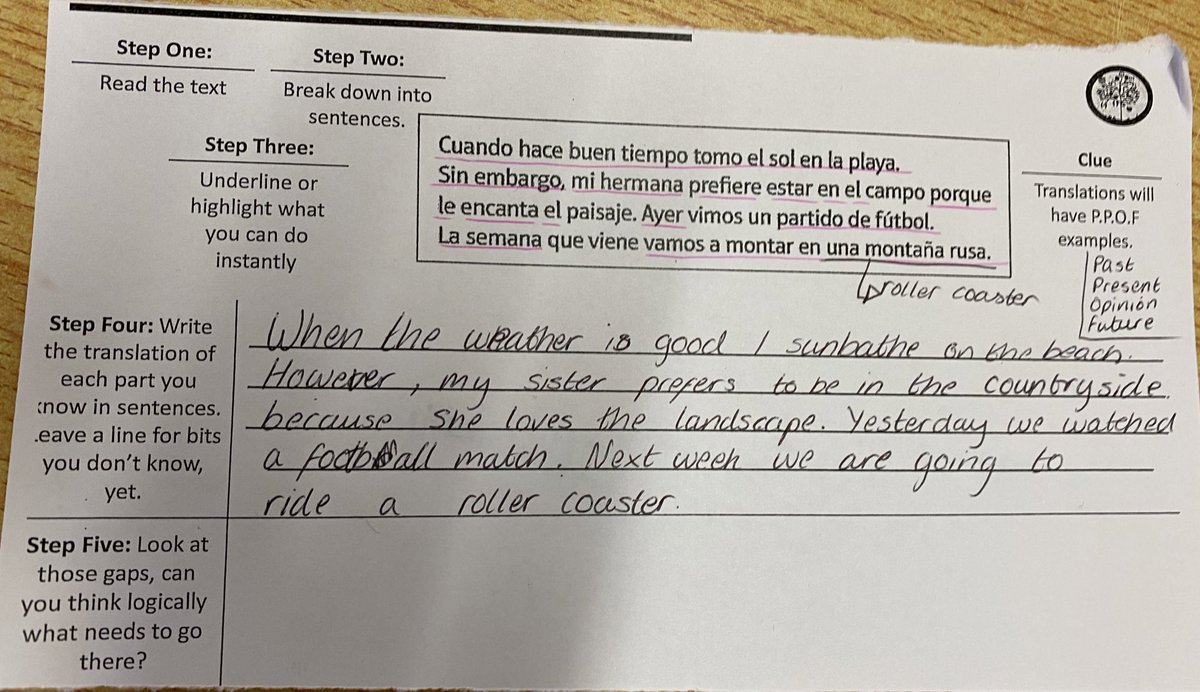 Step One:
Read the text
Step Two:
Break down into
sentences.
Step Three:
Underline or
highlight what
you can do
instantly
Cuando hace buen tiempo tomo el sol en la playa.
Sin embargo, mi hermana prefiere estar en el campo porque
le encanta el paisaje. Ayer vimos un partido de fútbol.
La semana que viene vamos a montar en una montaña rusa.
roller coaster
Clue
Translations will
have P.P.O.F
examples.
Past
Present
Opinión
Future
Step Four: Write
the translation of
each part you
know in sentences.
Leave a line for bits
you don't know,
yet.
When the weather is good I sunbathe on the beach.
However, my sister prefers to be in the countryside.
because she loves the landscape. Yesterday we watched
a football match. Next week we are going to
ride a roller coaster.
Step Five: Look at
those gaps, can
you think logically
what needs to go
there?